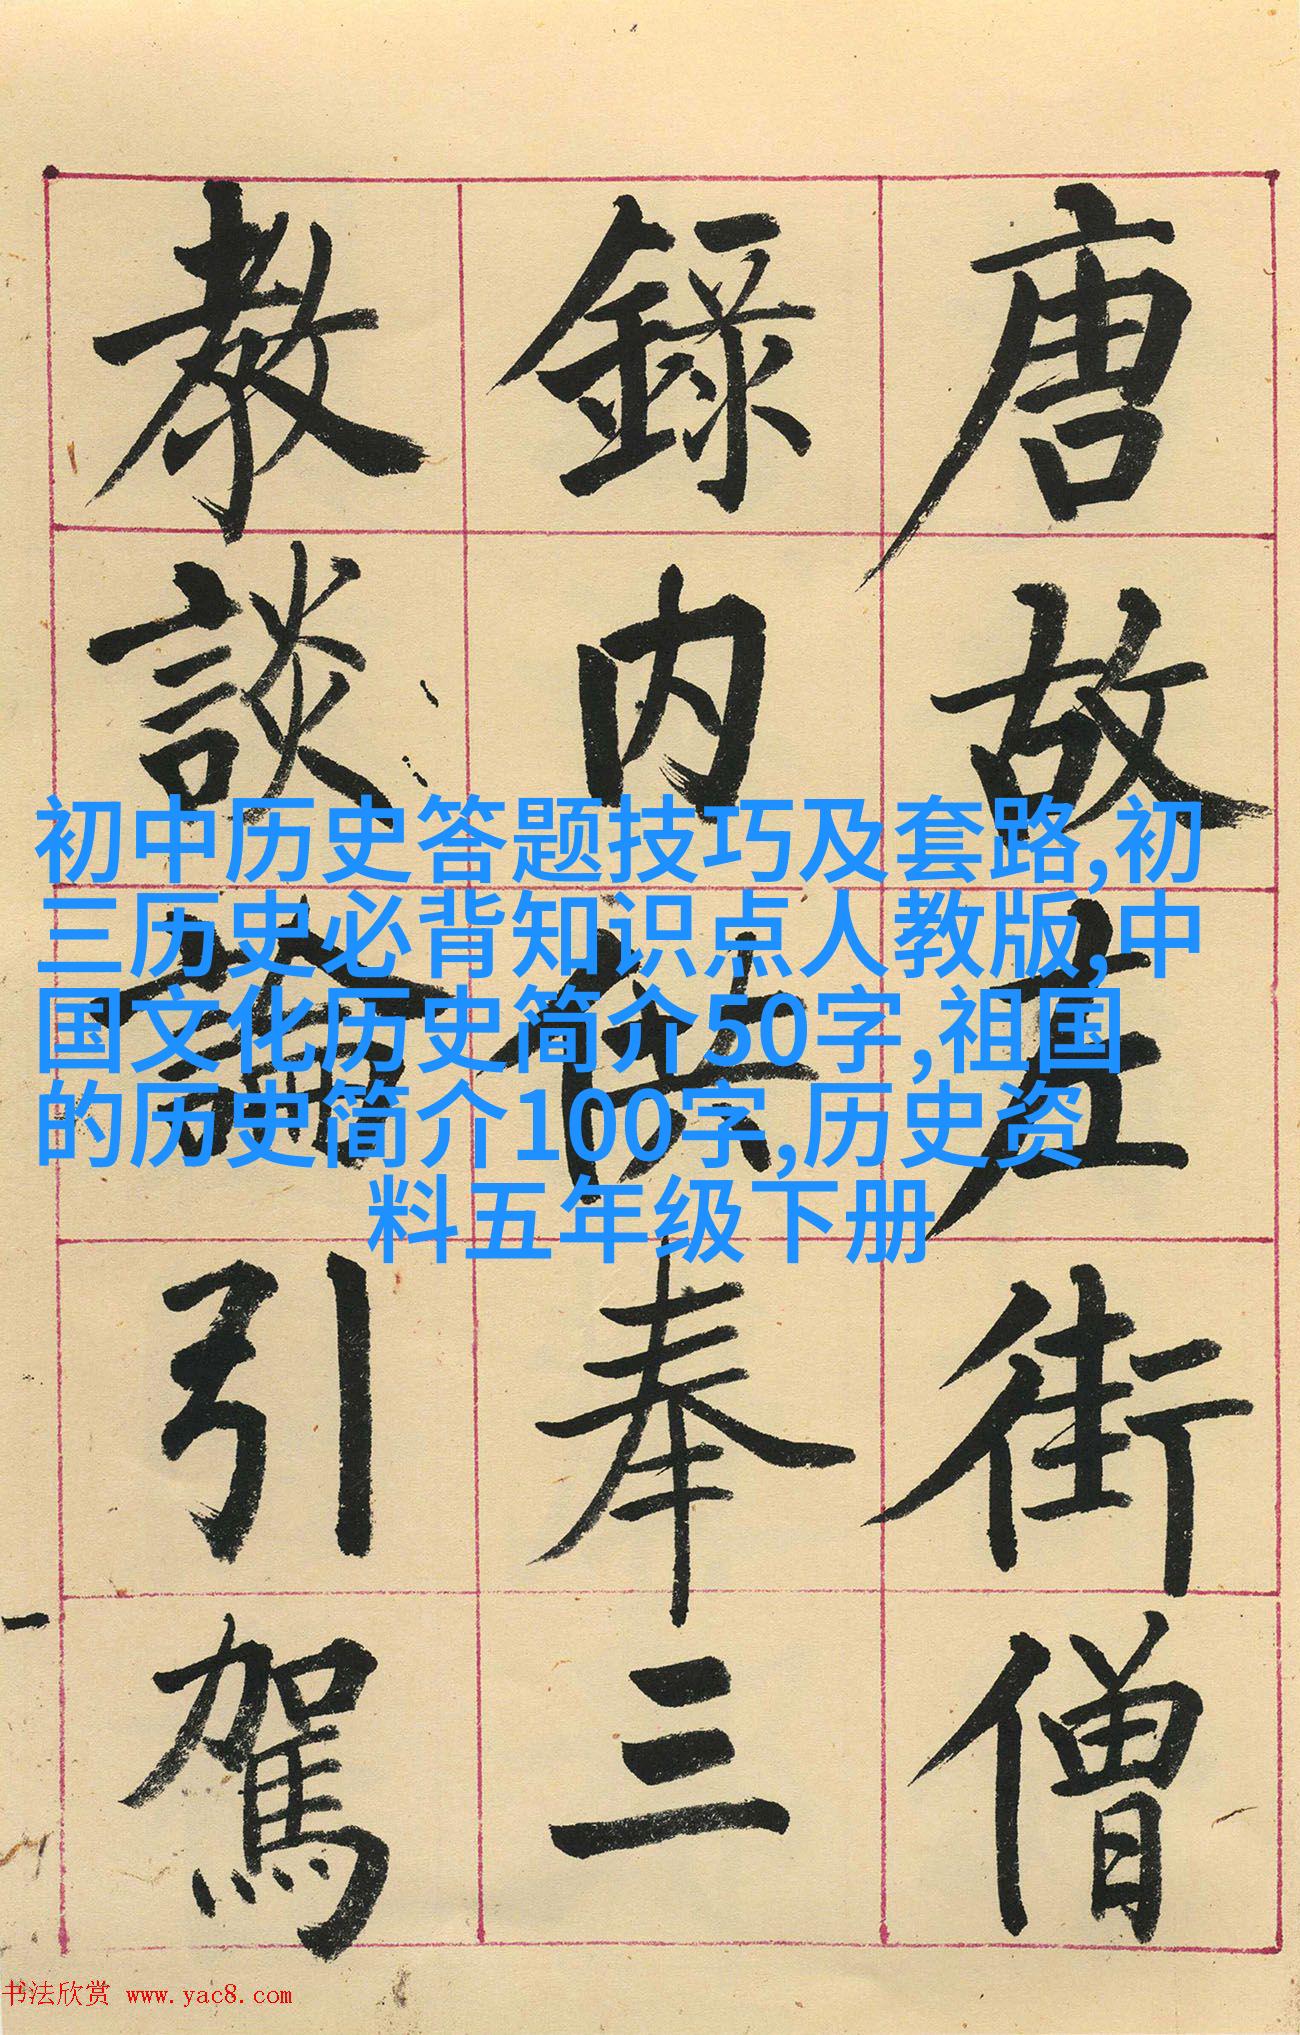 唐故左街僧
錄内供奉三
教談論引駕
初中历史答题技巧及套路,初
三历史必背知识点人教版,中
国文化历史简介50字,祖国
的历史简介100字,历史资
料五年级下册
书法欣赏 www.yac8.com